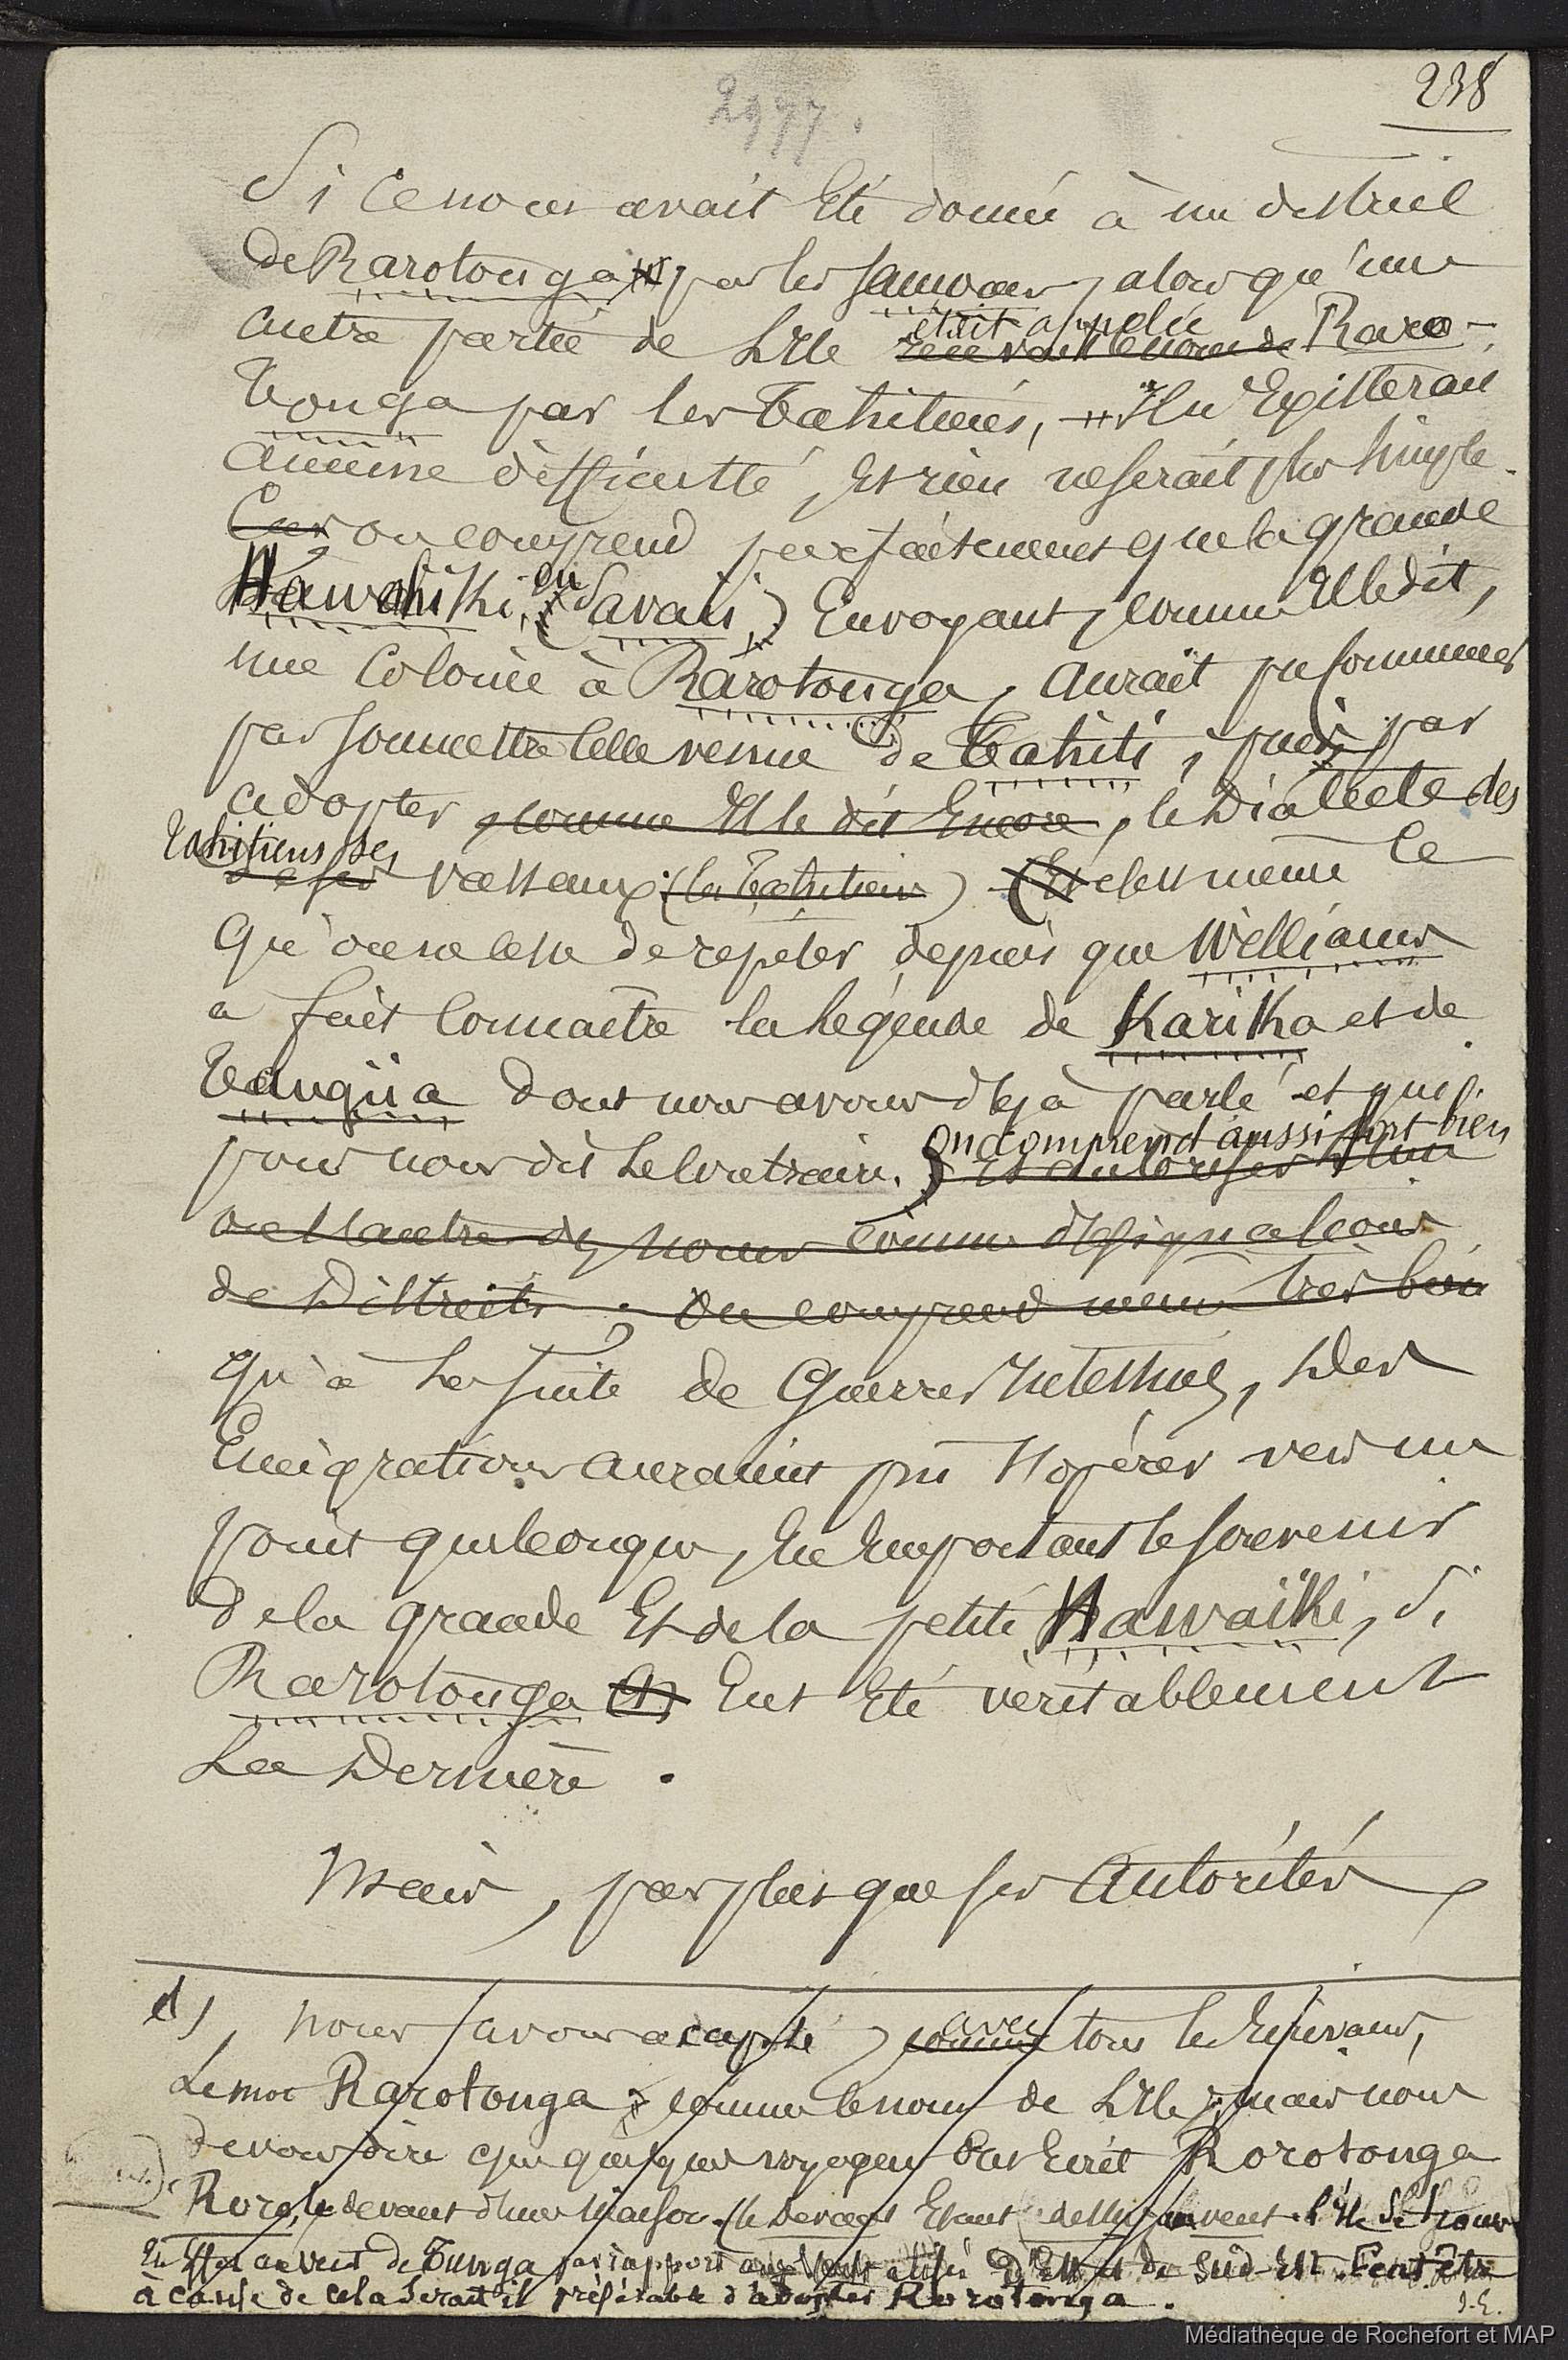 238
2997.
Si ce nom avait été donné à un district
de Rarotonga par les Samoans, alors qu'une
autre partie de l'Ile recevait le nom de Raro-
était appelée
Tonga par les Tahitiens, il n'existerait
aucune difficulté, et rien ne serait plus simple.
Car on comprend parfaitement que la grande
Hawahiki, ou (Savaii,) envoyant, comme elle dit,
une colonie à Rarotonga, aurait pu commencer
par soumettre celle venue de Tahiti, puis par
adopter, comme elle dit encore, le Dialecte des
Tahitiens ses
de ses vassaux (les Tahitiens) (Et c'est même ce
qu'on ne cesse de répéter depuis que Williams
a fait connaître la légende de Karika et de
Tangiia dont nous avons déjà parlé et qui
pour nous dit le contraire.) on comprend aussi fort bien
et autoriser l'un
ou l'autre des noms comme désignations
de Districts; on comprend même très bien
qu'à la suite de Guerres intestines, des
Emigrations auraient pu s'opérer vers un
point quelconque, en emportant le souvenir
de la grande et de la petite Hawaïki, si
Rarotonga (1) eut été véritablement
la Dernière.
Mais, pas plus que ses autorités,
(1), nous avons accepté, comme tous les Ecrivains,
avec
le mot Rarotonga, comme le nom de l'Ile, mais nous
devons dire que quelques voyageurs ont écrit Rorotonga
Roro, le devant d'une maison. le devant étant le dessous du vent. l'Ile se trouve
en effet au vent de Tunga par rapport aux vents alisés d'Est et de Sud-Est. Peut être
à cause de cela serait-il préférable d'adopter Rorotonga.
Médiathèque de Rochefort et MAP